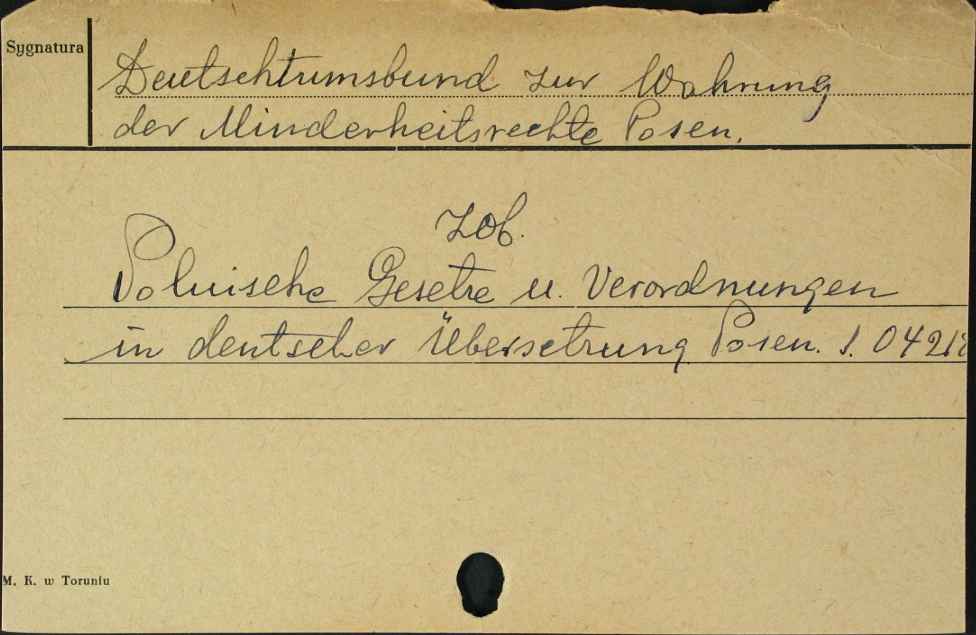 Sygnatura
Deutschtumsbund zur Wahrung
der Minderheitsrechte Posen.
Zob.
Polnische Gesetze u. Verordnungen
in deutscher Übersetzung Posen.
M. K. w Toruniu